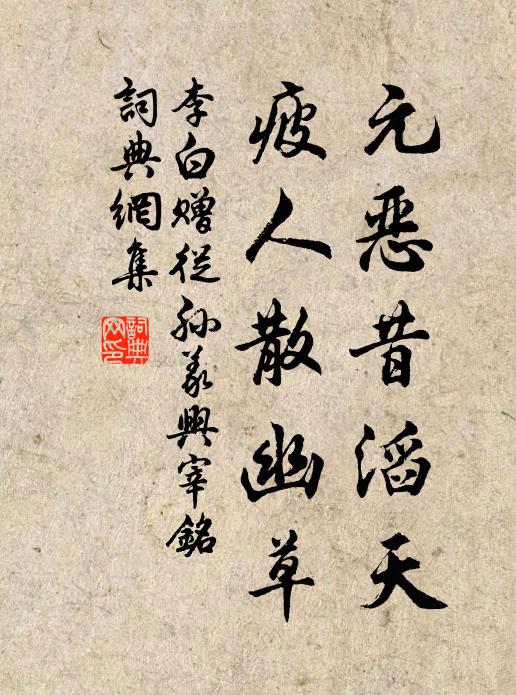 元惡昔滔天
疲人散幽草
李白贈從孫義興宰銘
詞典網集
詞典
网印